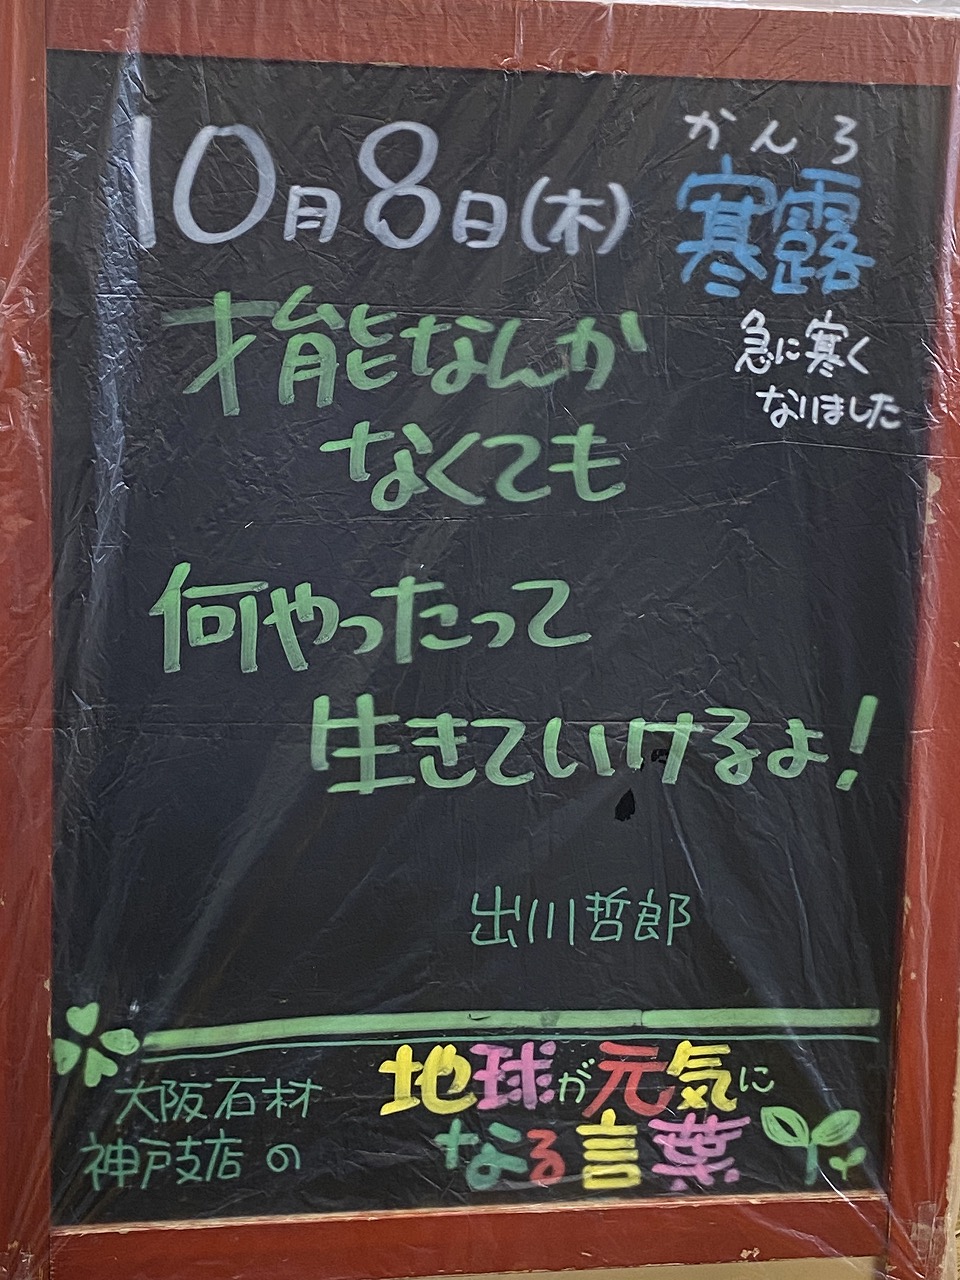 10月8日(木)
かんろ
寒露
急に寒く
なりました
才能なんか
なくても
何やったって
生きていけるよ!
出川哲郎
大阪石材
神戸支店の
地球が元気に
なる言葉